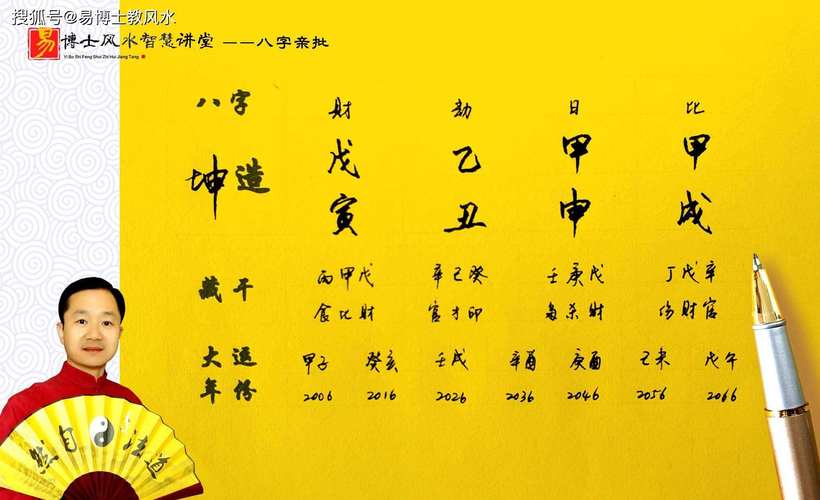 搜狐号@易博士教风水
易博士风水智慧讲堂 ——八字亲批
Yi Bo Shi Feng Shui Zhi Hui Jiang Tang
八字 財 劫 日 比
戊 乙 甲 甲
坤造
寅 丑 申 戌
藏干 丙甲戊 辛己癸 壬庚戊 丁戊辛
食比財 官才印 杀財 伤財官
大运 甲子 癸亥 壬戌 辛酉 庚酉 己未 戊午
年份 2006 2016 2026 2036 2046 2056 2066
然自法道